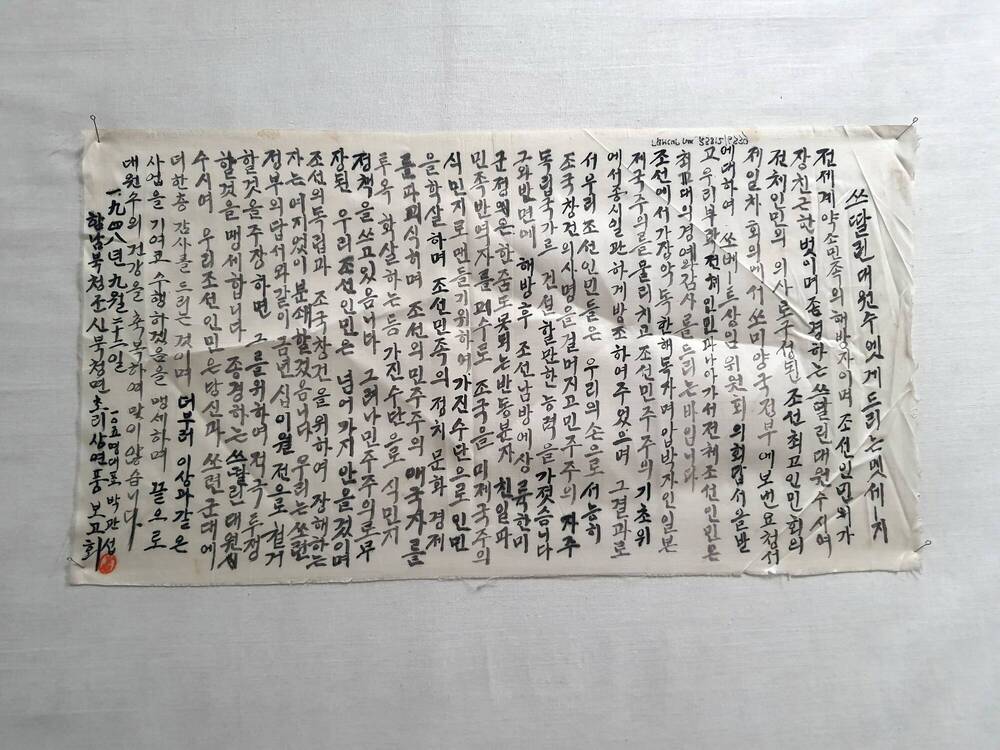 쓰딸린대원수엣게드리는멧세-지
전세계약소민족의해방자이며 조선인민의가
장친근한벗이며존경하는쓰딸린대원수시여
전체인민의 의사로구성된 조선최고인민회의
제일차 회의에서쏘미양국정부에보낸요청서
에대하여 쏘베-트상임위원회 의회답서을받
고 우리부락전체인민과나아가서전체조선인민은
최고대의경애와감사를드리는바입니다
조선에서가장악독한해독자며압박자인일본
제국주의를물리치고조선민주주의 기초위
에서종시일관하게방조하여주었으며 그결과로
서우리조선인민들은 우리의손으로서능히
조국창건의사명을걸머지고민주주의 자주
독립국가르 건설할만한능력을가젓슴니다
그와반면에 해방후 조선남방에상륙한미
군정웬은한줌도못되는반동분자 친일파
민족반역자를폐수로 조국을미제국주의
식민지로맨들기위하여 가진수단으로인민
을학살하며 조선민족의정치 문화 경제
를파괴식히며 조선의민주주의애국자를
투옥 학살하는등 가진수단으로식민지
정책을쓰고있음니다 그러나민주주의로무
장된 우리조선인민은 넘어가지안을것이며
조선의독립과 조국창건을위하여 장해하는
자는여지없이분쇄할것음니다 우리는쏘련
정부의답서와같이금년십이월전으로철거
할것을주장하면 그르위하여적극투쟁
할것을맹세합니다 존경하는쓰딸린대원수
수시여 우리조선인민은당신과쏘련군대에
더한층 감사를드리는것이며 더부러이상과같은
사업을 기여코수행하겠음을맹세하며 끝으로
대원수의건강을축복하여 말이않습니다
一九四八년九월二十三일 一〇五명대표박관섭
함남북청군신북청면초리상연풍보고회